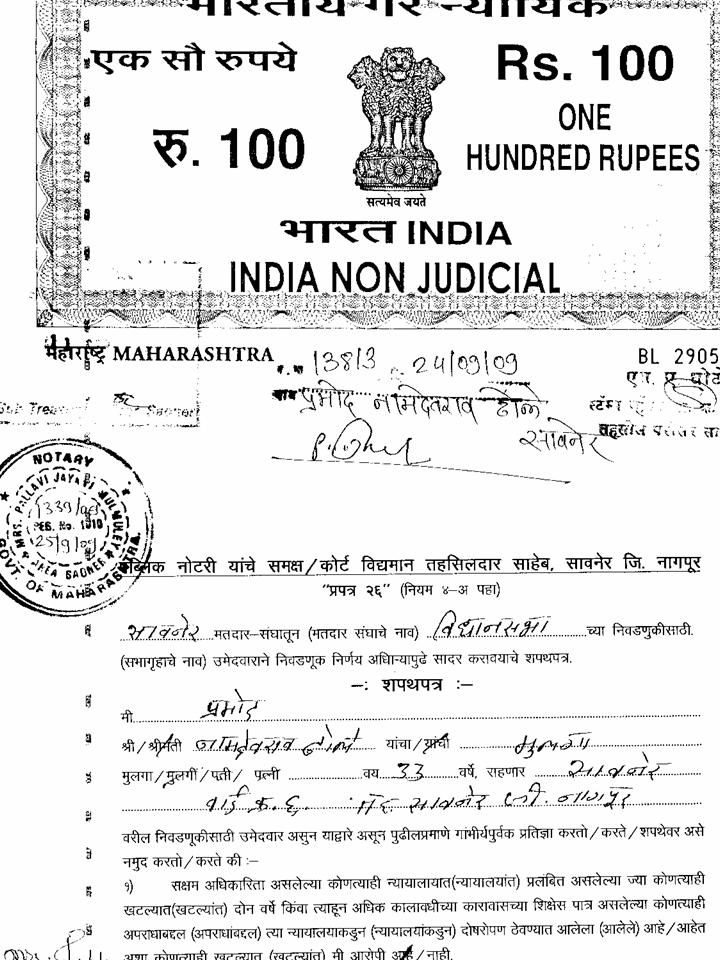 भारतीय गैर न्यायिक
एक सौ रुपये
रु. 100
Rs. 100
ONE
HUNDRED RUPEES
सत्यमेव जयते
भारत INDIA
INDIA NON JUDICIAL
महाराष्ट्र MAHARASHTRA
13813 24/09/09
BL 2905
प्रमोद नामदेवराव ढोले
सावनेर
NOTARY
MRS. PALLAVI JAYANT MULMULEY
1339/09
REG. No. 1010
25/9/09
GOVT. OF MAHARASHTRA
पब्लिक नोटरी यांचे समक्ष/कोर्ट विद्यमान तहसिलदार साहेब, सावनेर जि. नागपूर
"प्रपत्र २६" (नियम ४–अ पहा)
सावनेर मतदार–संघातून (मतदार संघाचे नाव) विधानसभा च्या निवडणुकीसाठी.
(सभागृहाचे नाव) उमेदवाराने निवडणूक निर्णय अधिाऱ्यापुढे सादर करावयाचे शपथपत्र.
–: शपथपत्र :–
मी प्रमोद
श्री/श्रीमती नामदेवराव ढोले यांचा/यांची मुलगा
मुलगा/मुलगी/पती/ पत्नी वय 33 वर्षे, राहणार सावनेर
वार्ड क्र. ६. सावनेर जी. नागपूर
वरील निवडणूकीसाठी उमेदवार असुन याद्वारे असून पुढीलप्रमाणे गांभीर्यपुर्वक प्रतिज्ञा करतो/करते/शपथेवर असे
नमुद करतो/करते की :–
१) सक्षम अधिकारिता असलेल्या कोणत्याही न्यायालायात(न्यायालयांत) प्रलंबित असलेल्या ज्या कोणत्याही
खटल्यात(खटल्यांत) दोन वर्षे किंवा त्याहून अधिक कालावधीच्या कारावासच्या शिक्षेस पात्र असलेल्या कोणत्याही
अपराधाबद्दल (अपराधांबद्दल) त्या न्यायालयाकडुन (न्यायालयांकडुन) दोषरोपण ठेवण्यात आलेला (आलेले) आहे/आहेत
अशा कोणत्याही खटल्यात (खटल्यांत) मी आरोपी आहे/नाही.